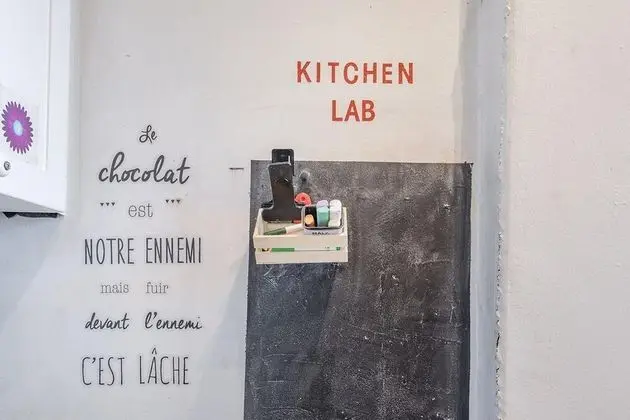 KITCHEN
LAB
Le
chocolat
est
NOTRE ENNEMI
mais fuir
devant l'ennemi
C'EST LÂCHE